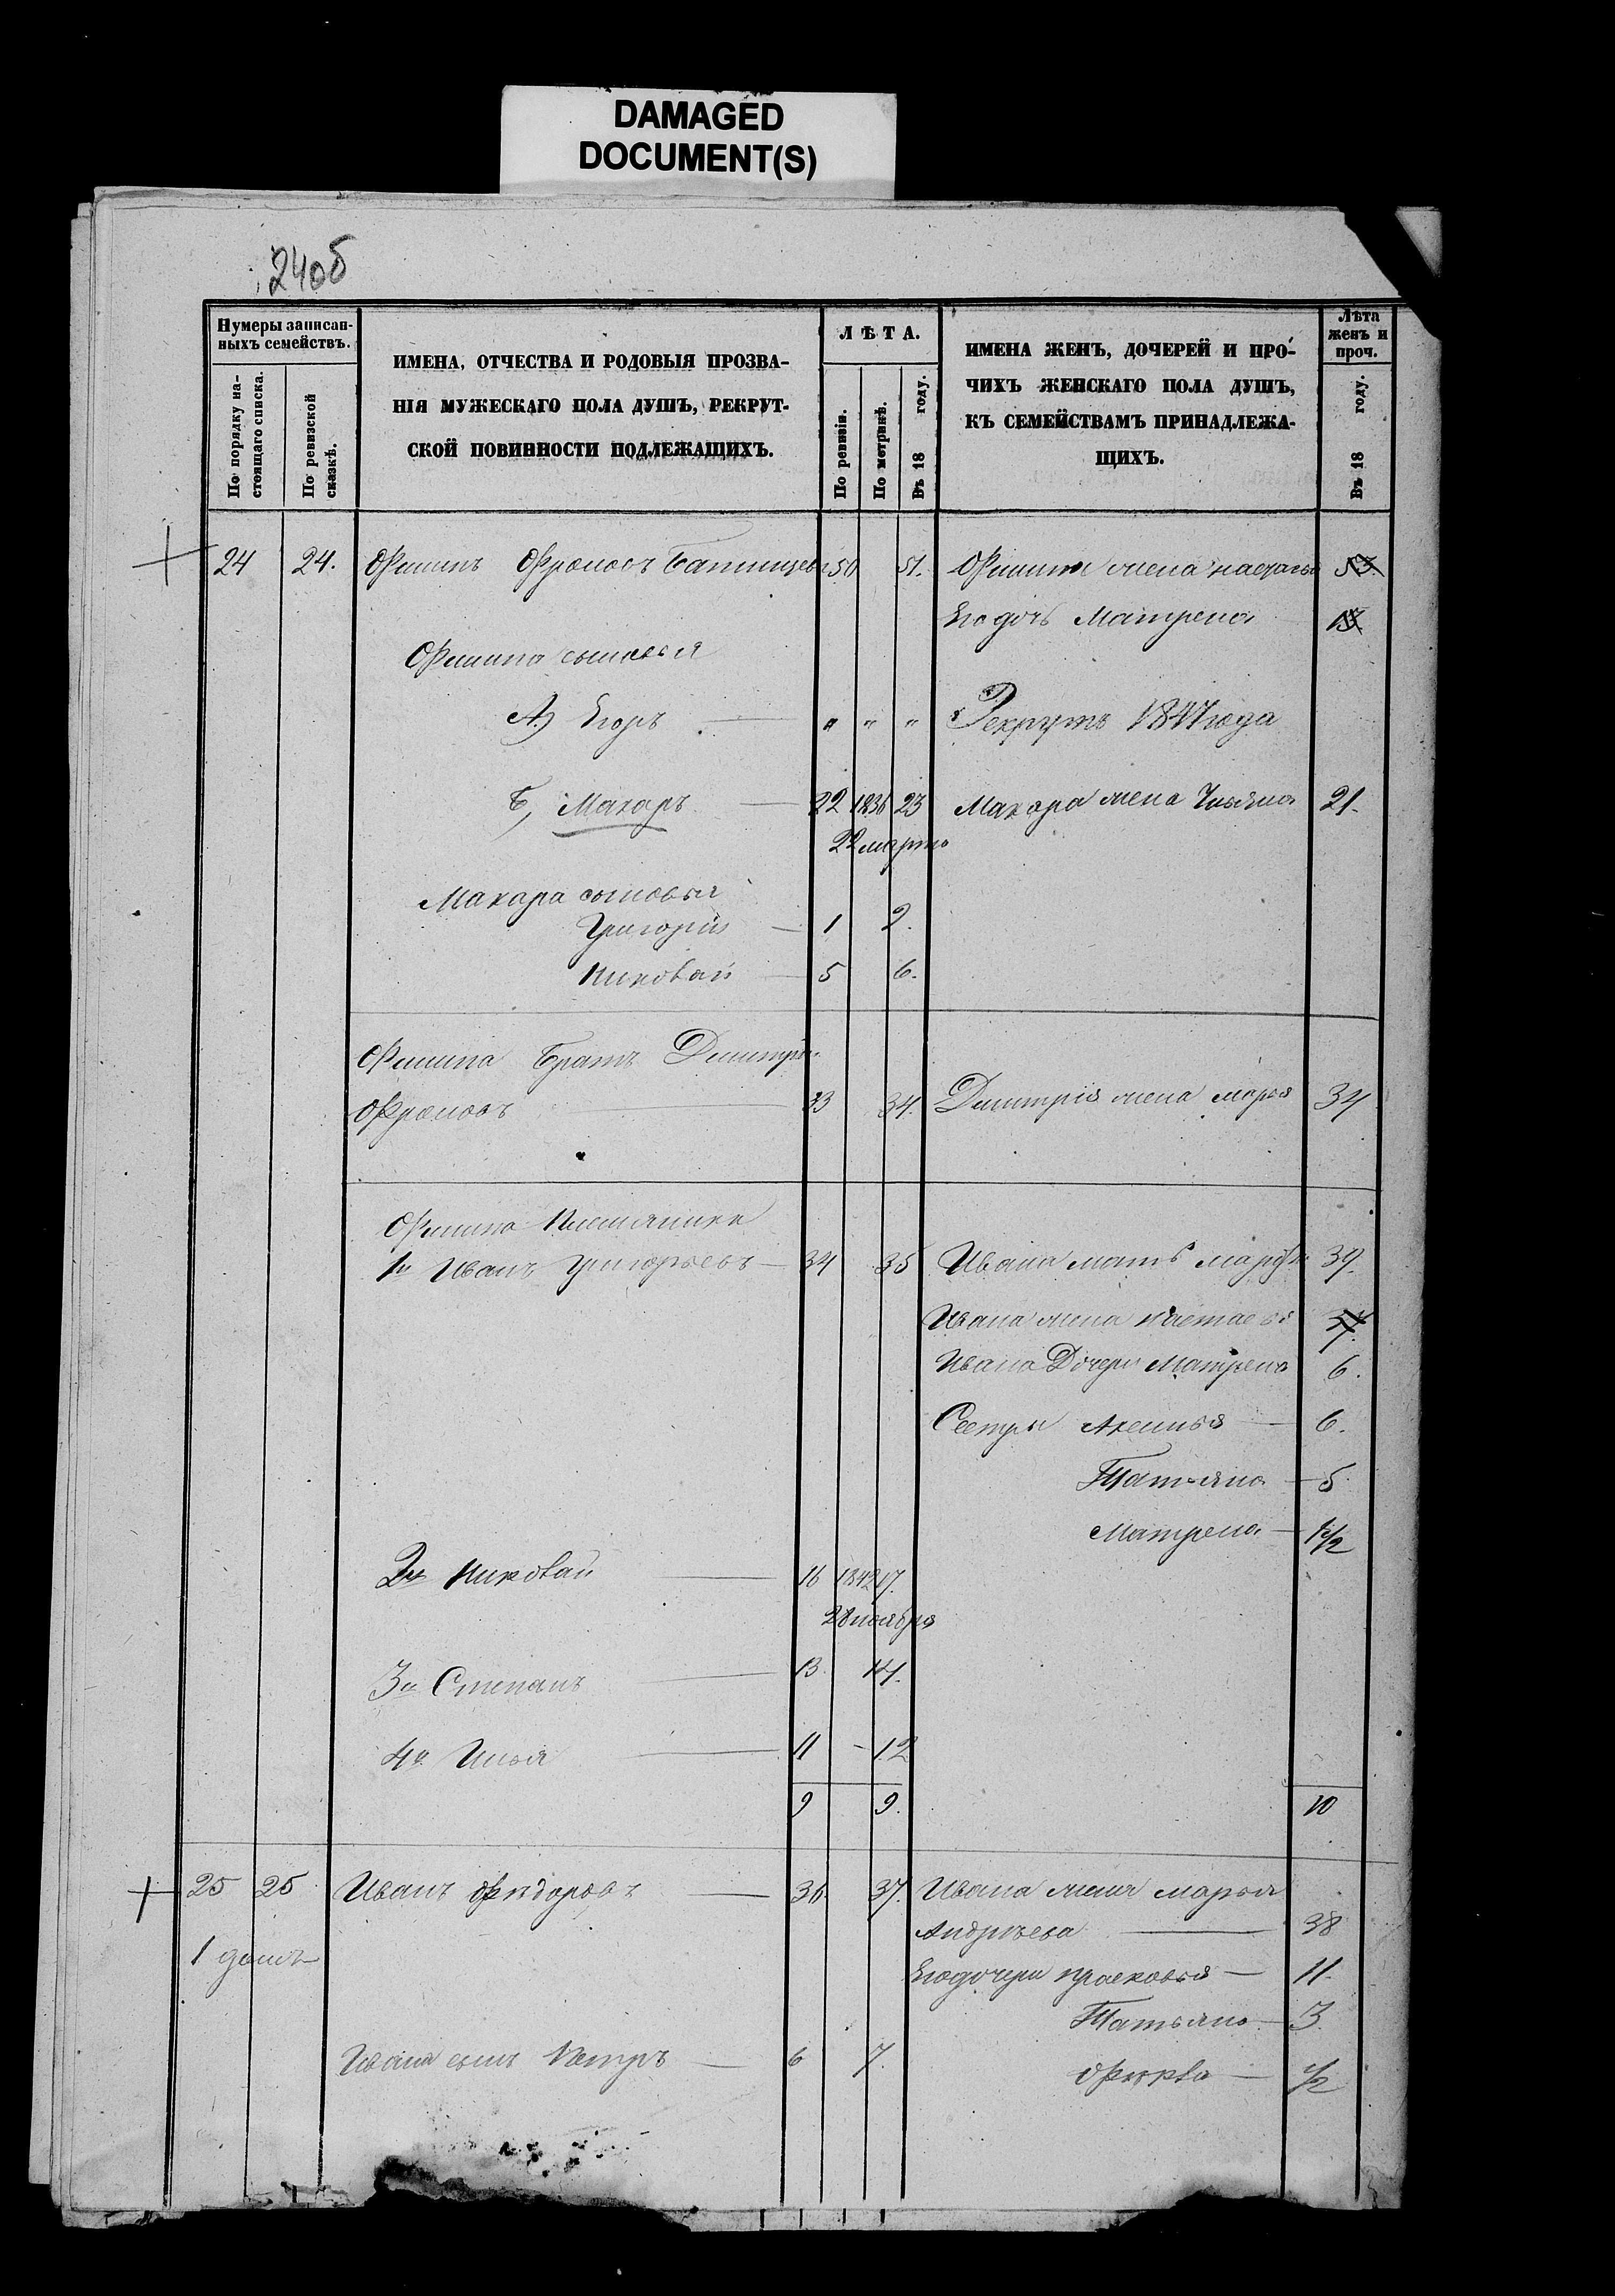 DAMAGED
DOCUMENT(S)
240б
Нумеры записан-
ныхъ семействъ.
По порядку на-
стоящаго списка.
По ревизской
сказкѣ.
ИМЕНА, ОТЧЕСТВА И РОДОВЫЯ ПРОЗВА-
НІЯ МУЖЕСКАГО ПОЛА ДУШЪ, РЕКРУТ-
СКОЙ ПОВИННОСТИ ПОДЛЕЖАЩИХЪ.
ЛѢТА.
По ревизіи.
По метрикѣ.
Въ 18 году.
ИМЕНА ЖЕНЪ, ДОЧЕРЕЙ И ПРО-
ЧИХЪ ЖЕНСКАГО ПОЛА ДУШЪ,
КЪ СЕМЕЙСТВАМЪ ПРИНАДЛЕЖА-
ЩИХЪ.
Лѣта
женъ и
проч.
Въ 18 году.
24 24. Филипъ Фроловъ 50 51. Филипа жена 53
Его дочь Матрена 13
Филипа сыновья
А) Егоръ " " " Рекрутъ 1847 года
Б, Макаръ 22 1836 23 Макара жена 21.
22 марта
Макара сыновья
Григорій 1 2.
Николай 5 6.
Филипа Братъ Дмитрій
Фроловъ 33 34. Дмитрія жена марья 34
Филипа Племянники
1й Иванъ Григорьевъ 34 35 Ивана мать марфа 39.
Ивана жена 37.
Ивана Дочери Матрена 6.
Сестры Аксинья 6.
Татьяна 5.
Матрена 1/2
2й Николай 16 1842 17.
28 ноября
3й Степанъ 13 14.
4й Илья 11 - 12
9 9. 10
25 25 Иванъ Фёдоровъ 36 37. Ивана жена марья
Андреева 38
1 домъ
Его дочери прасковья 11.
Татьяна 3.
Ивана сынъ Петръ 6 7.
Фёкла 1/2